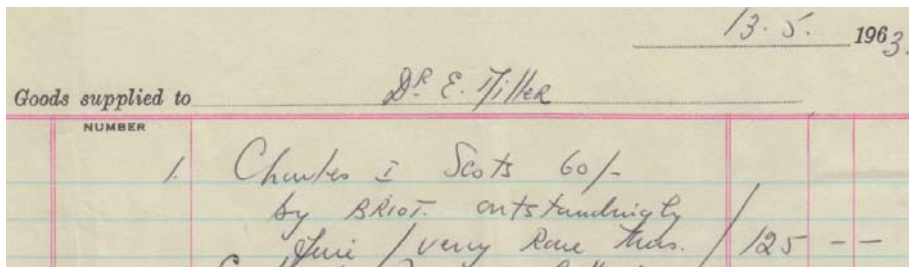 13. 5. 1963.
Goods supplied to Dr. E. Miller
NUMBER
1. Charles I Scots 60/-
by BRIOT. outstandingly
fine / very Rare thus. / 125 - -